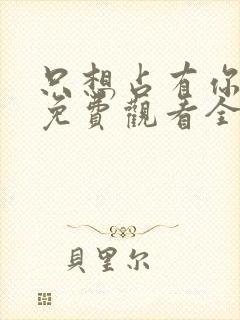 只想占有你
免費觀看全
貝里尔